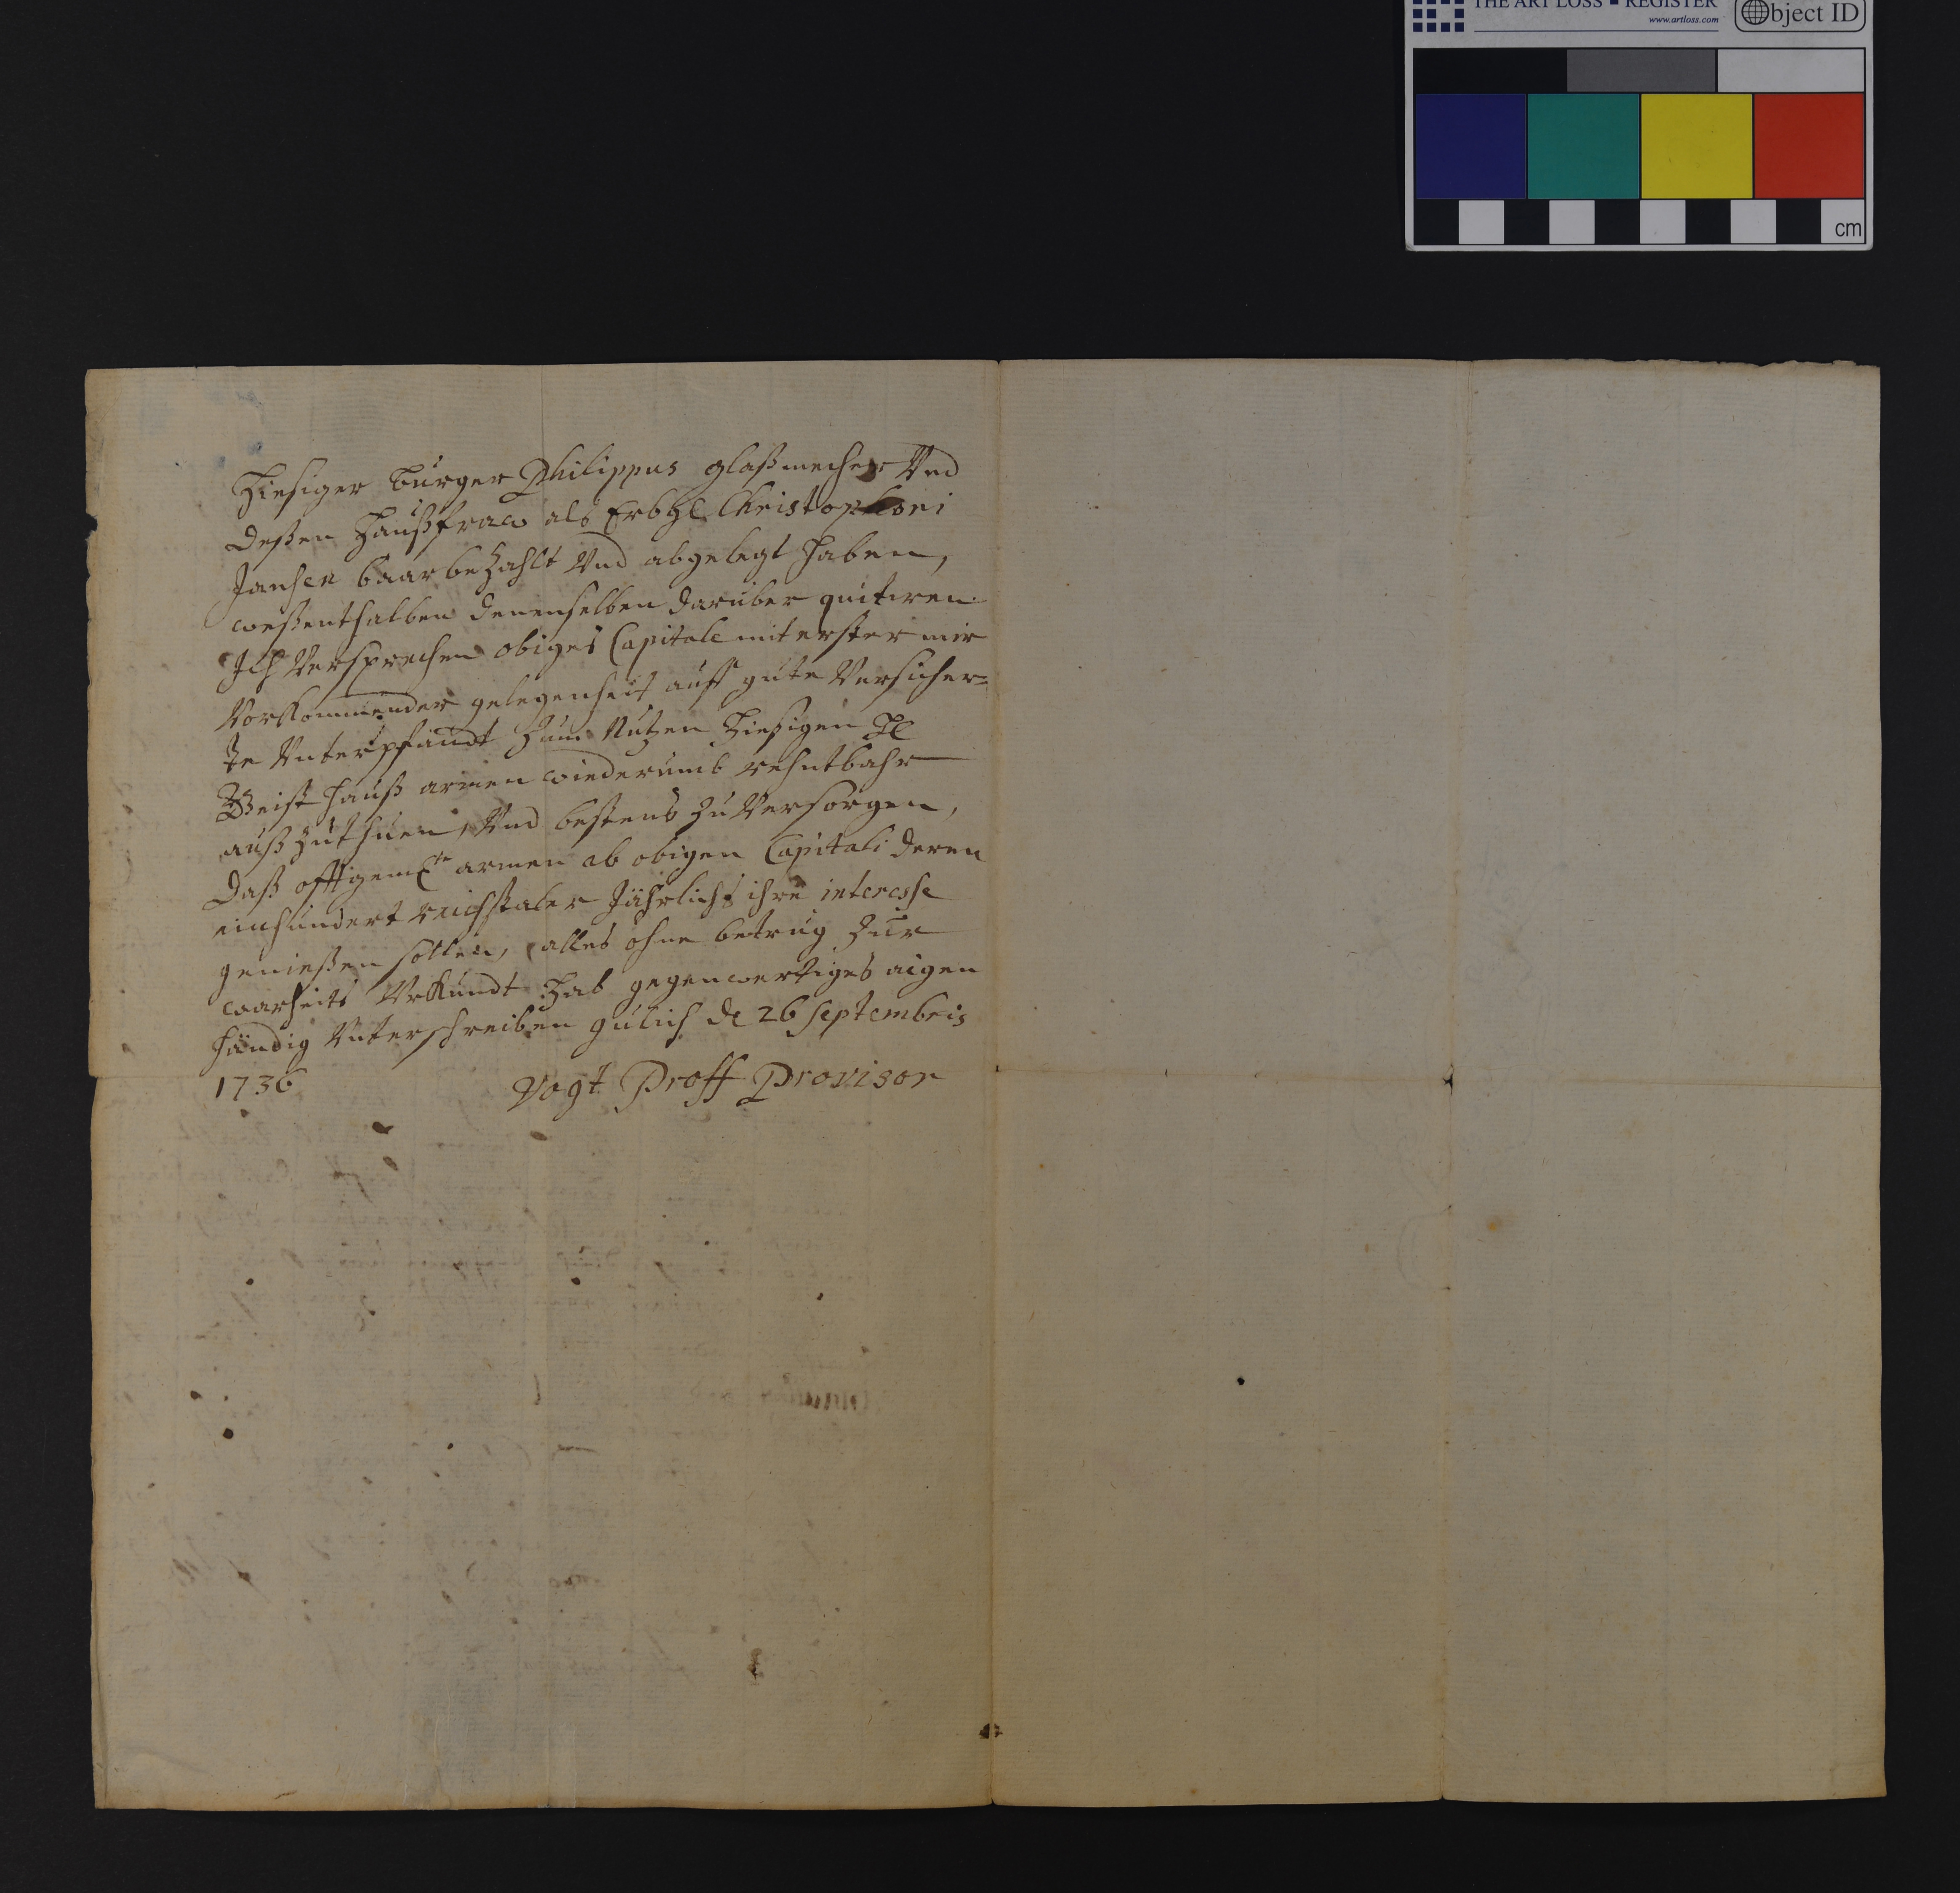 THE ART LOSS REGISTER
www.artloss.com
Object ID
cm
Hiesiger burger Philippus glaßmecher Und
deßen Haußfraw als Erbge Christophori
Jansen baar bezahlt Und abgelegt haben,
weßenthalben denenselben darüber quitiren
Ich Versprechen obiges Capitale mit erster mir
Vorkommender gelegenheit auff gute Versicher=
te Unterpfandt zum Nutzen Hiesigen
Geist hauß armen wiederumb rehntbahr
auß zu thuen, Und bestens zu Versorgen,
daß offtgemlte armen ab obigen Capitali deren
einhundert reichstaler Jährlichs ihre interesse
genießen sollen, alles ohne betrug zur
warheits Urkundt Hab gegenwertiges aigen
händig Unterschreiben gulich de 26 septembris
1736
Vogt Proff Provisor